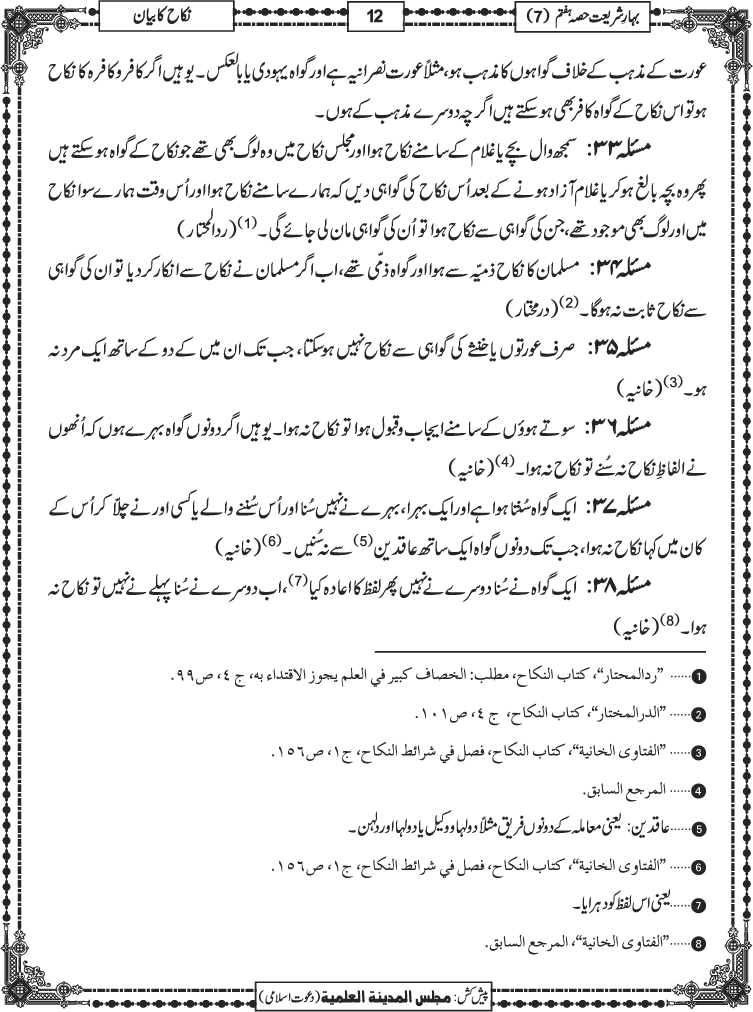 بہارِشریعت حصہ ہفتم (7)
12
نکاح کا بیان
عورت کے مذہب کے خلاف گواہوں کا مذہب ہو، مثلاً عورت نصرانیہ ہے اور گواہ یہودی یا بالعکس۔ یوہیں اگر کافر و کافرہ کا نکاح
ہو تو اس نکاح کے گواہ کافر بھی ہوسکتے ہیں اگرچہ دوسرے مذہب کے ہوں۔
مسئلہ ۳۳: سمجھ وال بچے یا غلام کے سامنے نکاح ہوا اور مجلس نکاح میں وہ لوگ بھی تھے جو نکاح کے گواہ ہوسکتے ہیں
پھر وہ بچہ بالغ ہو کر یا غلام آزاد ہونے کے بعد اُس نکاح کی گواہی دیں کہ ہمارے سامنے نکاح ہوا اور اُس وقت ہمارے سوا نکاح
میں اور لوگ بھی موجود تھے، جن کی گواہی سے نکاح ہوا تو اُن کی گواہی مان لی جائے گی۔(1) (ردالمحتار)
مسئلہ ۳۴: مسلمان کا نکاح ذمیّہ سے ہوا اور گواہ ذمّی تھے، اب اگر مسلمان نے نکاح سے انکار کر دیا تو ان کی گواہی
سے نکاح ثابت نہ ہوگا۔(2) (درمختار)
مسئلہ ۳۵: صرف عورتوں یا خنثے کی گواہی سے نکاح نہیں ہوسکتا، جب تک ان میں کے دو کے ساتھ ایک مرد نہ
ہو۔(3) (خانیہ)
مسئلہ ۳۶: سوتے ہوؤں کے سامنے ایجاب و قبول ہوا تو نکاح نہ ہوا۔ یوہیں اگر دونوں گواہ بہرے ہوں کہ اُنھوں
نے الفاظِ نکاح نہ سُنے تو نکاح نہ ہوا۔(4) (خانیہ)
مسئلہ ۳۷: ایک گواہ سُنتا ہوا ہے اور ایک بہرا، بہرے نے نہیں سُنا اور اُس سُننے والے یا کسی اور نے چلّا کر اُس کے
کان میں کہا نکاح نہ ہوا، جب تک دونوں گواہ ایک ساتھ عاقدین(5) سے نہ سُنیں۔(6) (خانیہ)
مسئلہ ۳۸: ایک گواہ نے سُنا دوسرے نے نہیں پھر لفظ کا اعادہ کیا(7)، اب دوسرے نے سُنا پہلے نے نہیں تو نکاح نہ
ہوا۔(8) (خانیہ)
1 ...... ”ردالمحتار“، كتاب النكاح، مطلب: الخصاف كبير في العلم يجوز الاقتداء به، ج ٤، ص ٩٩.
2 ...... ”الدرالمختار“، كتاب النكاح، ج ٤، ص ١٠١.
3 ...... ”الفتاوى الخانية“، كتاب النكاح، فصل في شرائط النكاح، ج١، ص١٥٦.
4 ...... المرجع السابق.
5 ...... عاقدین: یعنی معاملہ کے دونوں فریق مثلاً دولہا و وکیل یا دولہا اور دلہن۔
6 ...... ”الفتاوى الخانية“، كتاب النكاح، فصل في شرائط النكاح، ج١، ص١٥٦.
7 ...... یعنی اس لفظ کو دہرایا۔
8 ...... ”الفتاوى الخانية“، المرجع السابق.
پیش کش: مجلس المدینة العلمیة (دعوتِ اسلامی)